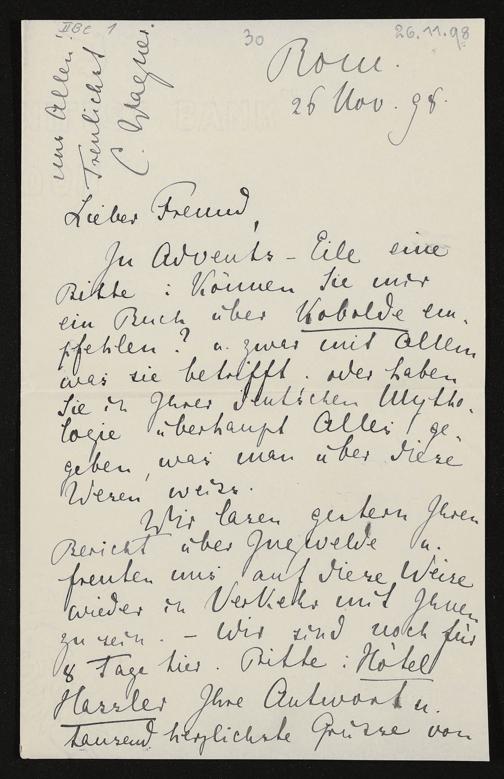 II Be 1
30
26.11.98
Rom.
26 Nov. 98.
Lieber Freund,
In Advents-Eile eine
Bitte: Können Sie mir
ein Buch über Kobolde em-
pfehlen? u. zwar mit Allem
was sie betrifft. oder haben
Sie in Ihrer deutschen Mytho-
logie überhaupt Alles ge-
geben, was man über diese
Wesen weiss.
Wir lasen gestern Ihren
Bericht über Ingwelde u.
freuten uns auf diese Weise
wieder in Verkehr mit Ihnen
zu sein. - Wir sind noch für
8 Tage hier. Bitte: Hôtel
Hassler Ihre Antwort u.
tausend herzlichste Grüsse von
uns Allen!
Treulichst
C. Wagner.